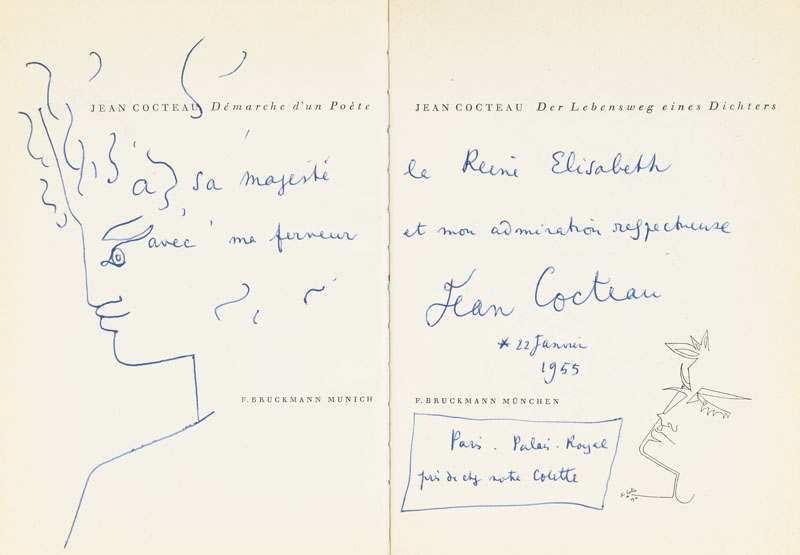 JEAN COCTEAU Démarche d'un Poète
à sa majesté
avec ma ferveur
F. BRUCKMANN MUNICH
JEAN COCTEAU Der Lebensweg eines Dichters
la Reine Elisabeth
et mon admiration respectueuse
Jean Cocteau
* 22 Janvier
1955
F. BRUCKMANN MÜNCHEN
Paris . Palais-Royal
près de chez notre Colette